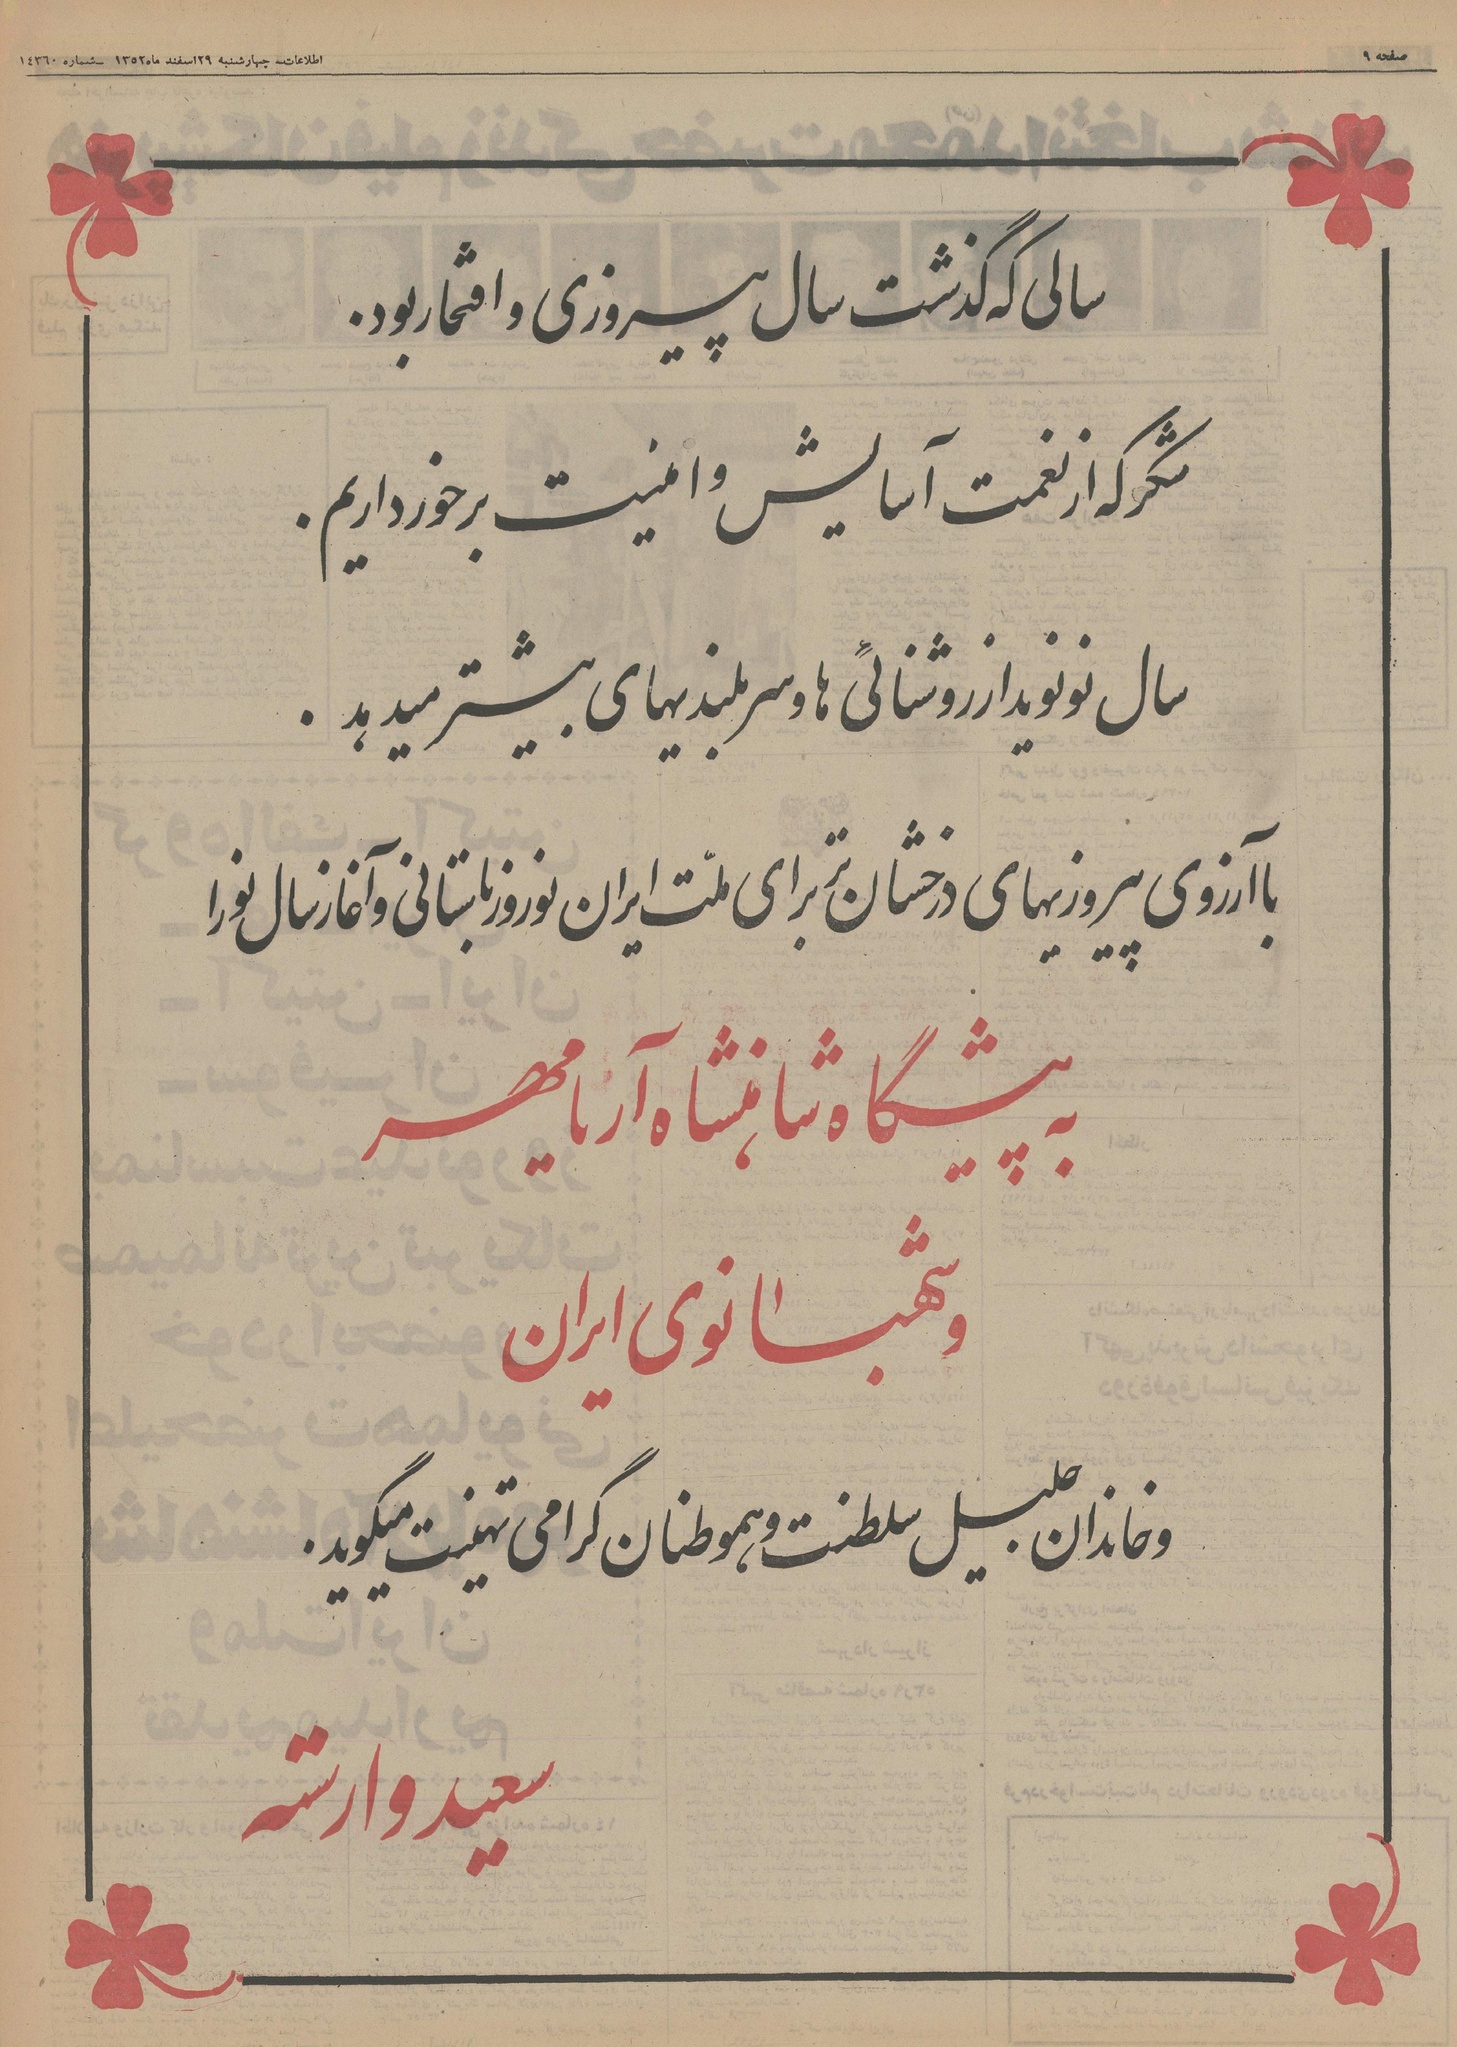 صفحه ۹
اطلاعات ـ چهارشنبه ۲۹ اسفند ماه ۱۳۵۲ ـ شماره ۱۴۳۶۰
سالی که گذشت سال پیروزی و افتخار بود.
شکر که از نعمت آسایش و امنیت برخورداریم.
سال نو نوید از روشنائی ها و سربلندیهای بیشتر میدهد.
با آرزوی پیروزیهای درخشان تر برای ملّت ایران نوروز باستانی و آغاز سال نو را
به پیشگاه شاهنشاه آریامهر
و شهبانوی ایران
و خاندان جلیل سلطنت و هموطنان گرامی تهنیت میگوید.
سعید وارسته